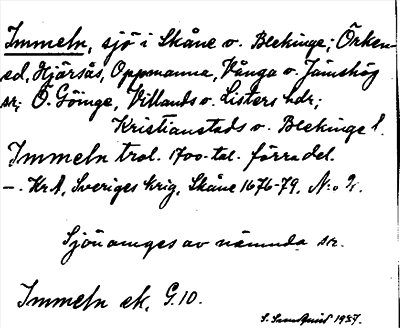 Immeln, sjö i Skåne o. Blekinge; Örken-
ed, Hjärsås, Oppmanna, Vånga o. Jämshög
sr; Ö. Göinge, Villands o. Listers hdr;
Kristianstads o. Blekinge l.
Immeln trol. 1700-tal. förra del.
–. KrA, Sveriges krig, Skåne 1676-79, N:o
Sjön anges av nämnda sr.
Immeln ek. G.10.
1937.